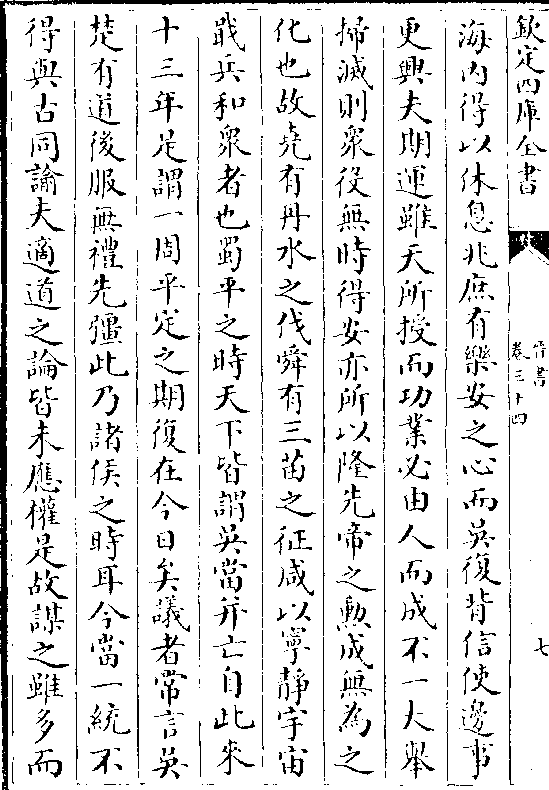 欽定四庫全書
晉書
卷三十四
七
海内得以休息兆庶有樂安之心而吳復背信使邊事
更興夫期運雖天所授而功業必由人而成不一大舉
掃滅則衆役無時得安亦所以隆先帝之勲成無為之
化也故堯有丹水之伐舜有三苗之征咸以寧靜宇宙
戢兵和衆者也蜀平之時天下皆謂吳當并亡自此來
十三年是謂一周平定之期復在今日矣議者常言吳
楚有道後服無禮先彊此乃諸侯之時耳今當一統不
得與古同諭夫適道之論皆未應權是故謀之雖多而